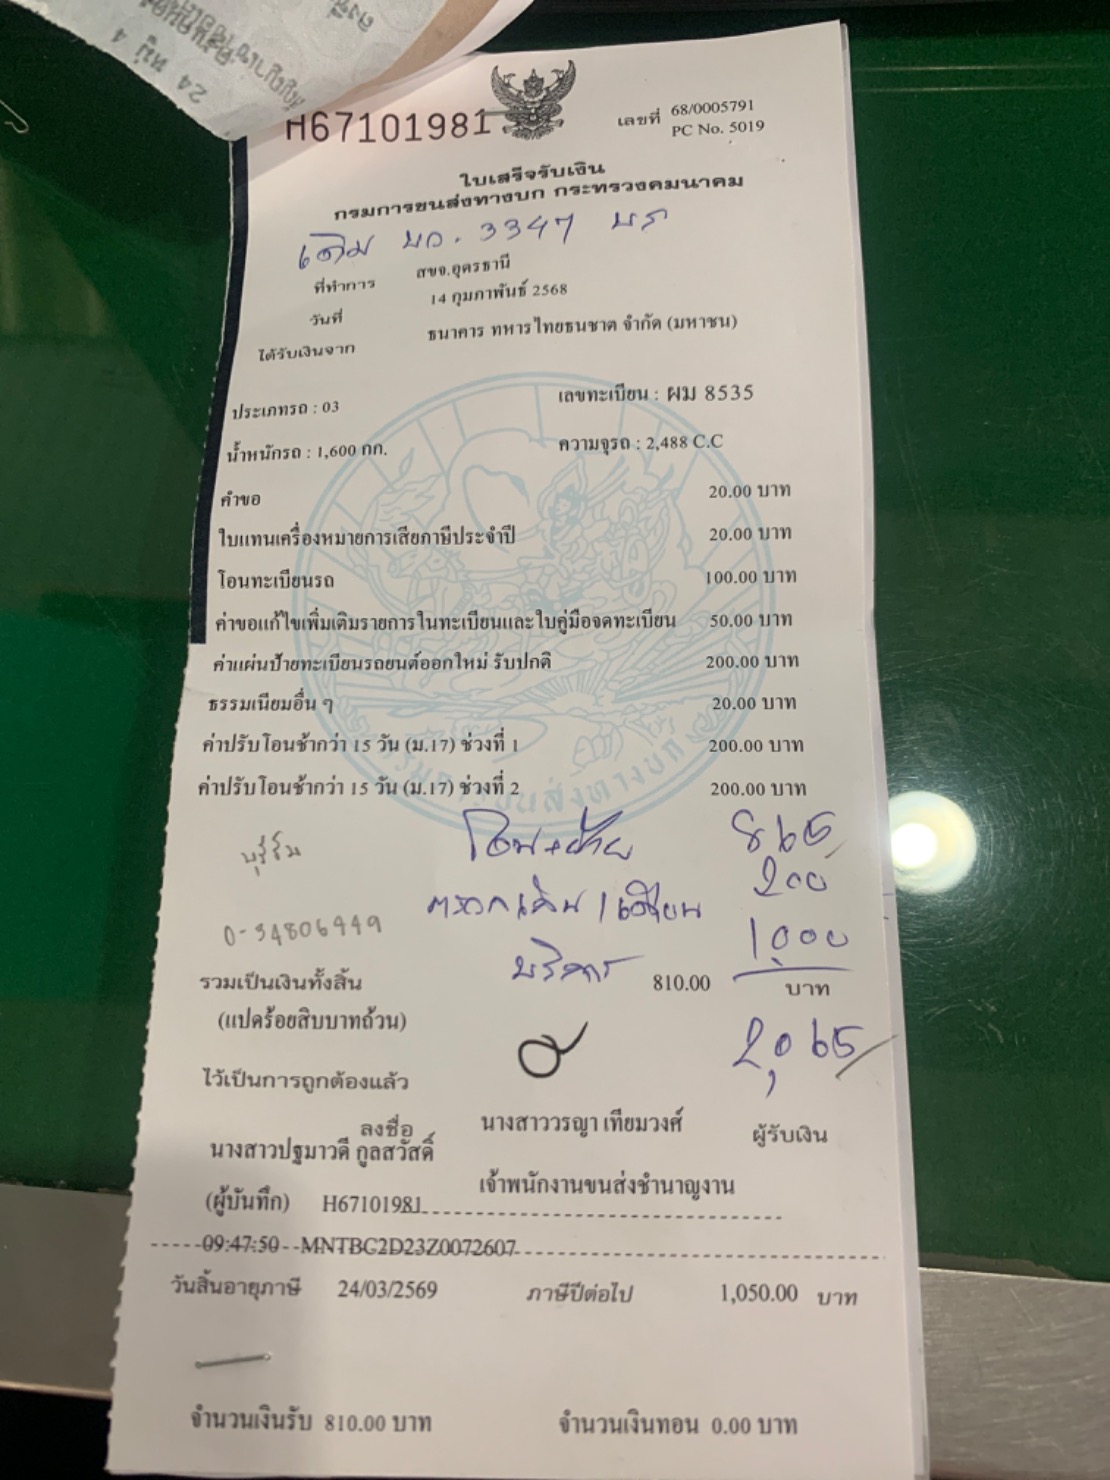 24 หมู่ 4
H67101981
เลขที่ 68/0005791
PC No. 5019
ใบเสร็จรับเงิน
กรมการขนส่งทางบก กระทรวงคมนาคม
เดิม บก. 3347 บร
ที่ทำการ สขจ.อุดรธานี
วันที่ 14 กุมภาพันธ์ 2568
ได้รับเงินจาก ธนาคาร ทหารไทยธนชาต จำกัด (มหาชน)
ประเภทรถ : 03 เลขทะเบียน : ผม 8535
น้ำหนักรถ : 1,600 กก. ความจุรถ : 2,488 C.C
คำขอ 20.00 บาท
ใบแทนเครื่องหมายการเสียภาษีประจำปี 20.00 บาท
โอนทะเบียนรถ 100.00 บาท
ค่าขอแก้ไขเพิ่มเติมรายการในทะเบียนและใบคู่มือจดทะเบียน 50.00 บาท
ค่าแผ่นป้ายทะเบียนรถยนต์ออกใหม่ รับปกติ 200.00 บาท
ธรรมเนียมอื่น ๆ 20.00 บาท
ค่าปรับโอนช้ากว่า 15 วัน (ม.17) ช่วงที่ 1 200.00 บาท
ค่าปรับโอนช้ากว่า 15 วัน (ม.17) ช่วงที่ 2 200.00 บาท
กรมการขนส่งทางบก
โอน+ย้าย 865
บุรีรัม 200
0-34806449 1,000
บริการ
รวมเป็นเงินทั้งสิ้น 810.00 บาท
(แปดร้อยสิบบาทถ้วน) 2,065
ไว้เป็นการถูกต้องแล้ว
ลงชื่อ นางสาววรญา เทียมวงศ์ ผู้รับเงิน
นางสาวปฐมาวดี กูลสวัสดิ์
เจ้าพนักงานขนส่งชำนาญงาน
(ผู้บันทึก) H67101981
09:47:50--MNTBC2D23Z0072607
วันสิ้นอายุภาษี 24/03/2569 ภาษีปีต่อไป 1,050.00 บาท
จำนวนเงินรับ 810.00 บาท จำนวนเงินทอน 0.00 บาท